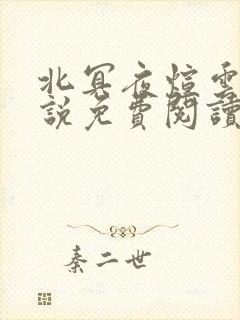 北冥夜煊雲
說免費閱讀
秦二世